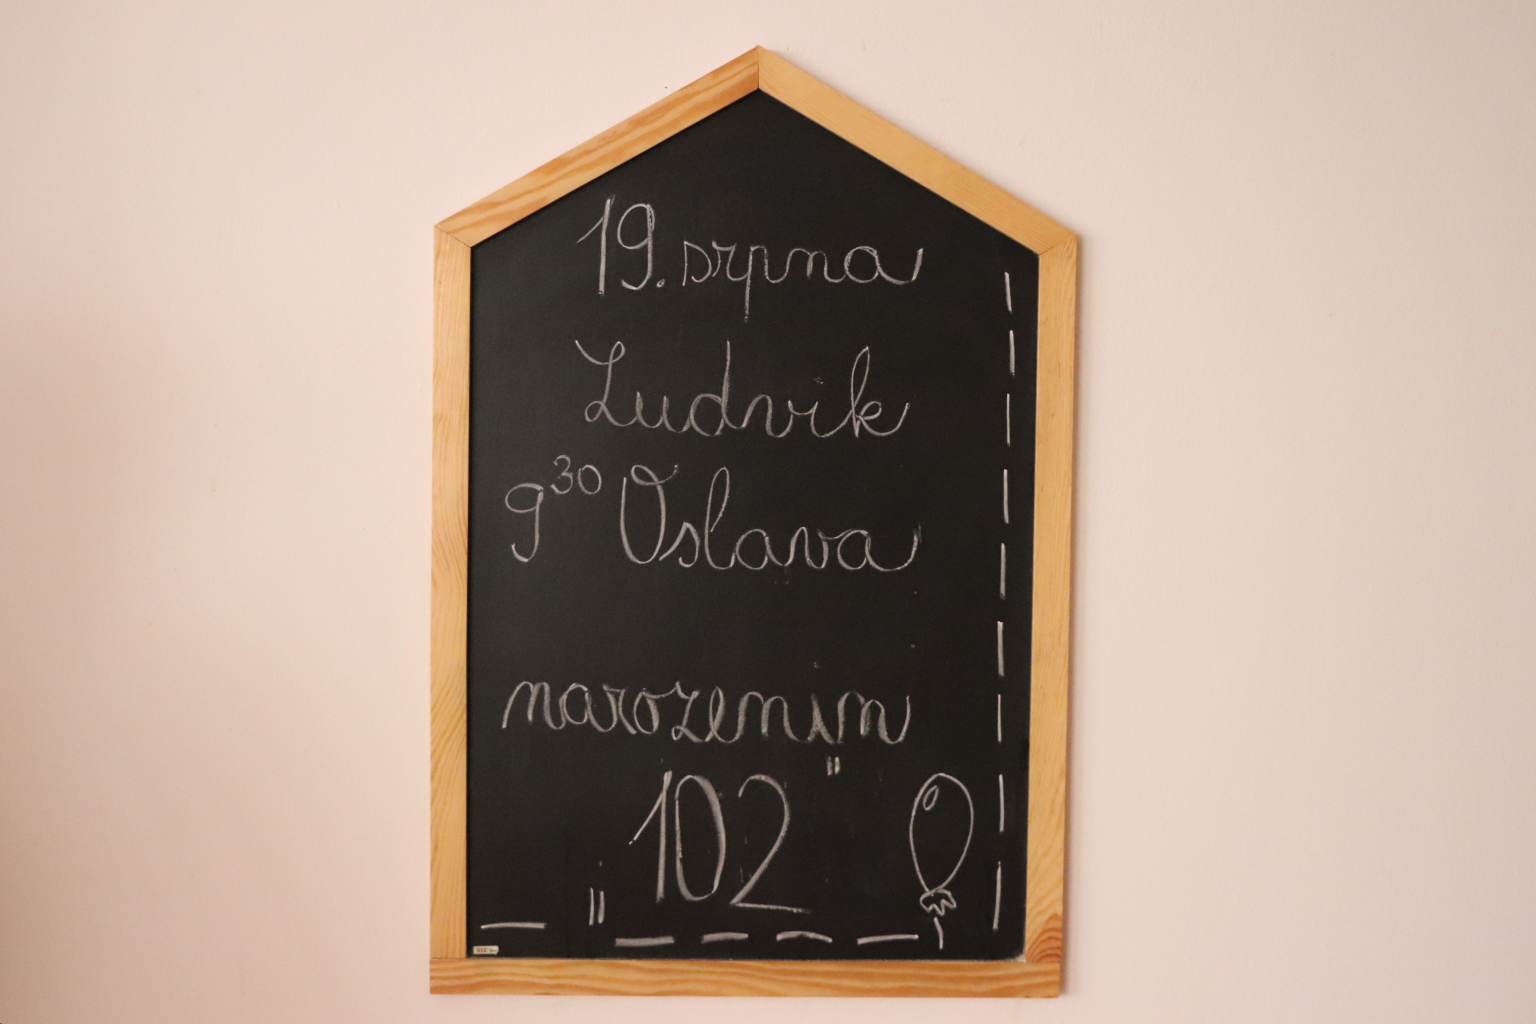 19. srpna
Ludvik
9³⁰ Oslava
narozenin
„102"